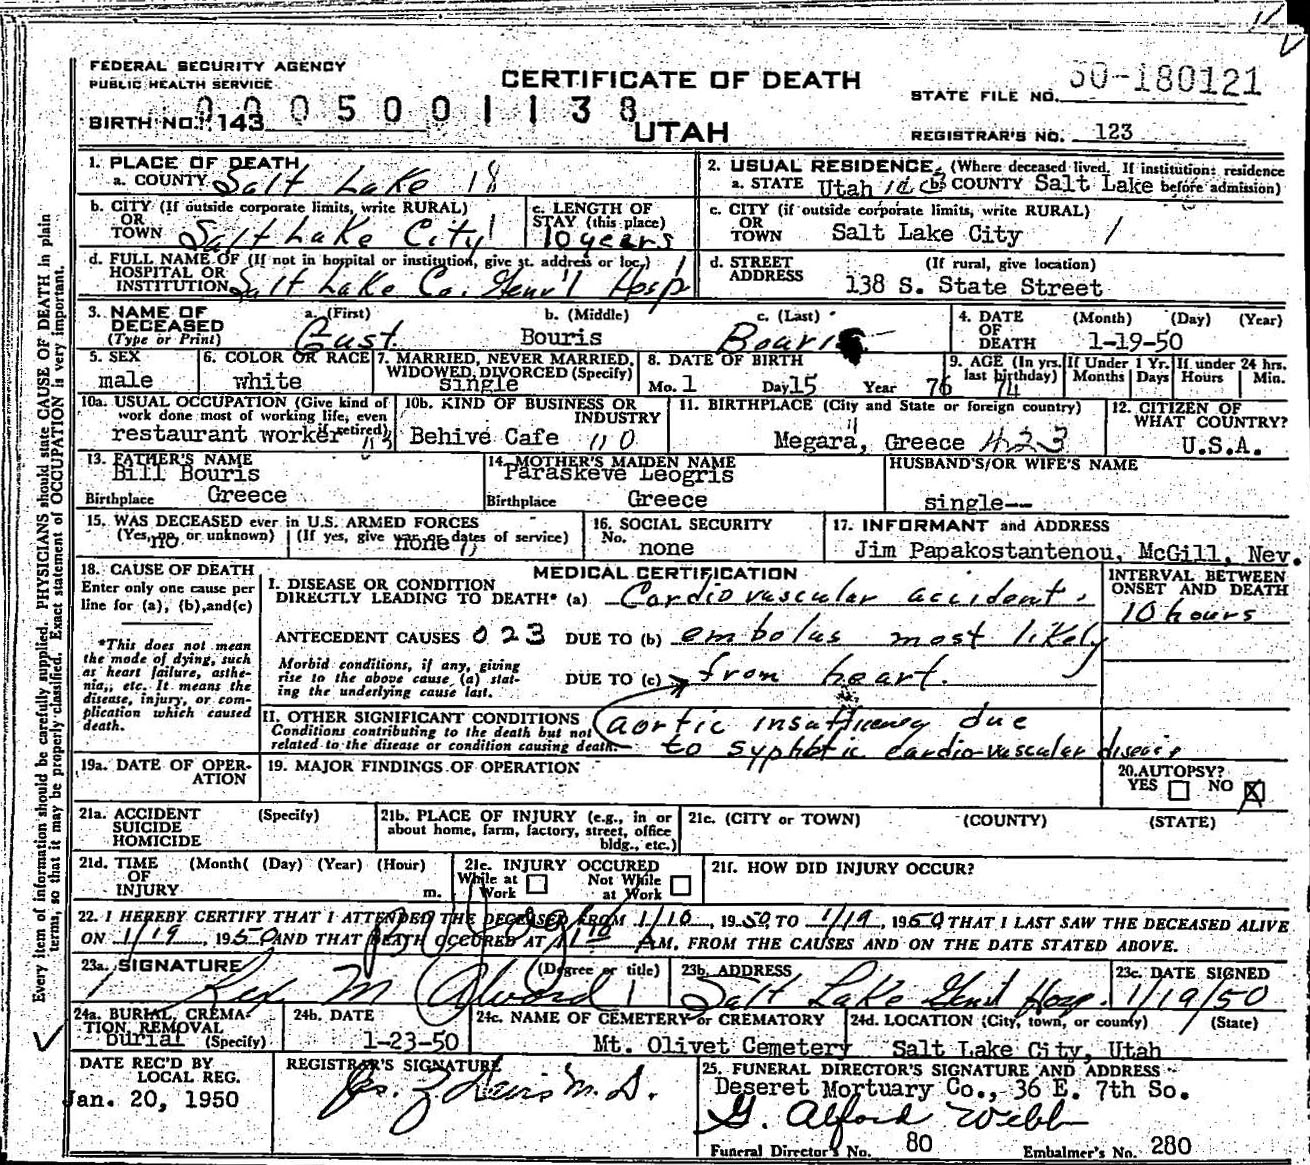 FEDERAL SECURITY AGENCY
PUBLIC HEALTH SERVICE
CERTIFICATE OF DEATH
UTAH
STATE FILE NO. 50-180121
BIRTH NO. 143
0005001138
REGISTRAR'S NO. 123
Every item of information should be carefully supplied. PHYSICIANS should state CAUSE OF DEATH in plain
terms, so that it may be properly classified. Exact statement of OCCUPATION is very important.
1. PLACE OF DEATH
a. COUNTY Salt Lake 18
b. CITY (If outside corporate limits, write RURAL)
OR
TOWN Salt Lake City
c. LENGTH OF
STAY (this place)
10 years
d. FULL NAME OF (If not in hospital or institution, give st. address or loc.)
HOSPITAL OR
INSTITUTION Salt Lake Co. Gen'l Hosp
2. USUAL RESIDENCE (Where deceased lived. If institution: residence
a. STATE Utah b. COUNTY Salt Lake before admission)
c. CITY (if outside corporate limits, write RURAL)
OR
TOWN Salt Lake City
d. STREET (If rural, give location)
ADDRESS 138 S. State Street
3. NAME OF
DECEASED
(Type or Print)
a. (First) b. (Middle) c. (Last)
Gust Bouris Bouris
4. DATE (Month) (Day) (Year)
OF
DEATH 1-19-50
5. SEX
male
6. COLOR OR RACE
white
7. MARRIED, NEVER MARRIED,
WIDOWED, DIVORCED (Specify)
single
8. DATE OF BIRTH
Mo. 1 Day 15 Year 76
9. AGE (In yrs.
last birthday)
74
If Under 1 Yr.
Months Days
If under 24 hrs.
Hours Min.
10a. USUAL OCCUPATION (Give kind of
work done most of working life, even
if retired)
restaurant worker
10b. KIND OF BUSINESS OR
INDUSTRY
Behive Cafe 110
11. BIRTHPLACE (City and State or foreign country)
Megara, Greece 423
12. CITIZEN OF
WHAT COUNTRY?
U.S.A.
13. FATHER'S NAME
Bill Bouris
Birthplace Greece
14. MOTHER'S MAIDEN NAME
Paraskeve Leogris
Birthplace Greece
HUSBAND'S/OR WIFE'S NAME
single--
15. WAS DECEASED ever in U.S. ARMED FORCES
(Yes, no, or unknown) (If yes, give war or dates of service)
no none
16. SOCIAL SECURITY
No.
none
17. INFORMANT and ADDRESS
Jim Papakostantenou, McGill, Nev.
18. CAUSE OF DEATH
Enter only one cause per
line for (a), (b), and (c)
*This does not mean
the mode of dying, such
as heart failure, asthe-
nia,, etc. It means the
disease, injury, or com-
plication which caused
death.
MEDICAL CERTIFICATION
I. DISEASE OR CONDITION
DIRECTLY LEADING TO DEATH* (a) Cardiovascular accident.
ANTECEDENT CAUSES 023 DUE TO (b) embolus most likely
Morbid conditions, if any, giving
rise to the above cause (a) stat-
ing the underlying cause last.
DUE TO (c) from heart.
II. OTHER SIGNIFICANT CONDITIONS
Conditions contributing to the death but not
related to the disease or condition causing death.
aortic insufficiency due
to syphlitic cardio-vascular disease
INTERVAL BETWEEN
ONSET AND DEATH
10 hours
19a. DATE OF OPER-
ATION
19. MAJOR FINDINGS OF OPERATION
20. AUTOPSY?
YES NO X
21a. ACCIDENT (Specify)
SUICIDE
HOMICIDE
21b. PLACE OF INJURY (e.g., in or
about home, farm, factory, street, office
bldg., etc.)
21c. (CITY or TOWN) (COUNTY) (STATE)
21d. TIME (Month( (Day) (Year) (Hour)
OF
INJURY m.
21e. INJURY OCCURED
While at Not While
Work at Work
21f. HOW DID INJURY OCCUR?
22. I HEREBY CERTIFY THAT I ATTENDED THE DECEASED FROM 1/10, 1950 TO 1/19, 1950 THAT I LAST SAW THE DECEASED ALIVE
ON 1/19, 1950 AND THAT DEATH OCCURED AT M, FROM THE CAUSES AND ON THE DATE STATED ABOVE.
23a. SIGNATURE (Degree or title)
Rex M Alvord
23b. ADDRESS
Salt Lake Genl Hosp.
23c. DATE SIGNED
1/19/50
24a. BURIAL, CREMA-
TION, REMOVAL
(Specify)
burial
24b. DATE
1-23-50
24c. NAME OF CEMETERY or CREMATORY
Mt. Olivet Cemetery
24d. LOCATION (City, town, or county) (State)
Salt Lake City, Utah
DATE REC'D BY
LOCAL REG.
Jan. 20, 1950
REGISTRAR'S SIGNATURE
M.D.
25. FUNERAL DIRECTOR'S SIGNATURE AND ADDRESS
Deseret Mortuary Co., 36 E. 7th So.
G. Alford Webb
Funeral Director's No. 80 Embalmer's No. 280